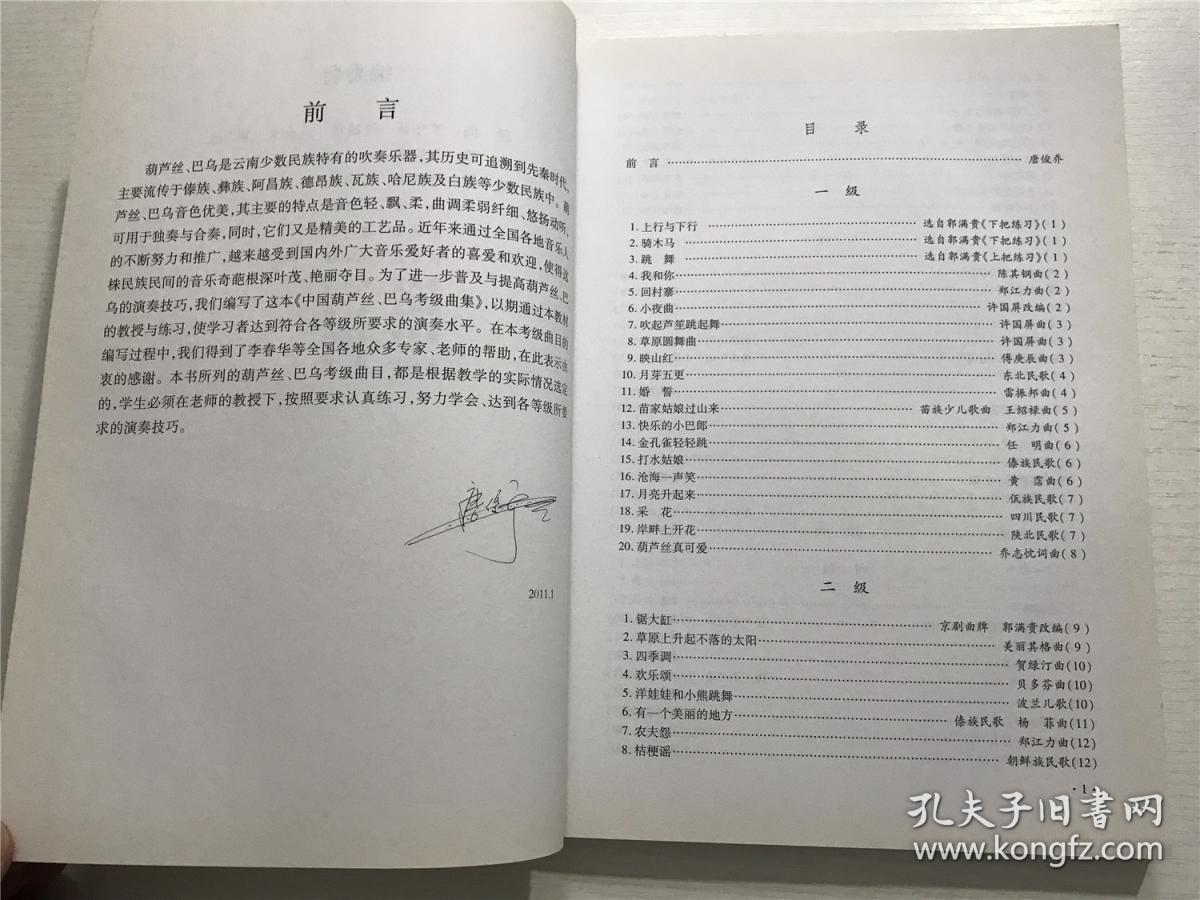 前 言
葫芦丝、巴乌是云南少数民族特有的吹奏乐器,其历史可追溯到先秦时代,
主要流传于傣族、彝族、阿昌族、德昂族、瓦族、哈尼族及白族等少数民族中。葫
芦丝、巴乌音色优美,其主要的特点是音色轻、飘、柔,曲调柔弱纤细、悠扬动听,
可用于独奏与合奏,同时,它们又是精美的工艺品。近年来通过全国各地音乐人
的不断努力和推广,越来越受到国内外广大音乐爱好者的喜爱和欢迎,使得这
株民族民间的音乐奇葩根深叶茂、艳丽夺目。为了进一步普及与提高葫芦丝、巴
乌的演奏技巧,我们编写了这本《中国葫芦丝、巴乌考级曲集》,以期通过本教材
的教授与练习,使学习者达到符合各等级所要求的演奏水平。在本考级曲目的
编写过程中,我们得到了李春华等全国各地众多专家、老师的帮助,在此表示由
衷的感谢。本书所列的葫芦丝、巴乌考级曲目,都是根据教学的实际情况选定
的,学生必须在老师的教授下,按照要求认真练习,努力学会、达到各等级所要
求的演奏技巧。
2011.1
目 录
前 言 唐俊乔
一 级
1. 上行与下行 选自郭满贵《下把练习》(1)
2. 骑木马 选自郭满贵《下把练习》(1)
3. 跳 舞 选自郭满贵《上把练习》(1)
4. 我和你 陈其钢曲(2)
5. 回村寨 郑江力曲(2)
6. 小夜曲 许国屏改编(2)
7. 吹起芦笙跳起舞 许国屏曲(3)
8. 草原圆舞曲 许国屏曲(3)
9. 映山红 傅庚辰曲(3)
10. 月芽五更 东北民歌(4)
11. 婚 誓 雷振邦曲(4)
12. 苗家姑娘过山来 苗族少儿歌曲 王绍禄曲(5)
13. 快乐的小巴郎 郑江力曲(5)
14. 金孔雀轻轻跳 任 明曲(6)
15. 打水姑娘 傣族民歌(6)
16. 沧海一声笑 黄 霑曲(6)
17. 月亮升起来 佤族民歌(7)
18. 采 花 四川民歌(7)
19. 岸畔上开花 陕北民歌(7)
20. 葫芦丝真可爱 乔志忱词曲(8)
二 级
1. 锯大缸 京剧曲牌 郭满贵改编(9)
2. 草原上升起不落的太阳 美丽其格曲(9)
3. 四季调 贺绿汀曲(10)
4. 欢乐颂 贝多芬曲(10)
5. 洋娃娃和小熊跳舞 波兰儿歌(10)
6. 有一个美丽的地方 傣族民歌 杨 菲曲(11)
7. 农夫怨 郑江力曲(12)
8. 桔梗谣 朝鲜族民歌(12)
· 1 ·
孔夫子旧书网
www.kongfz.com